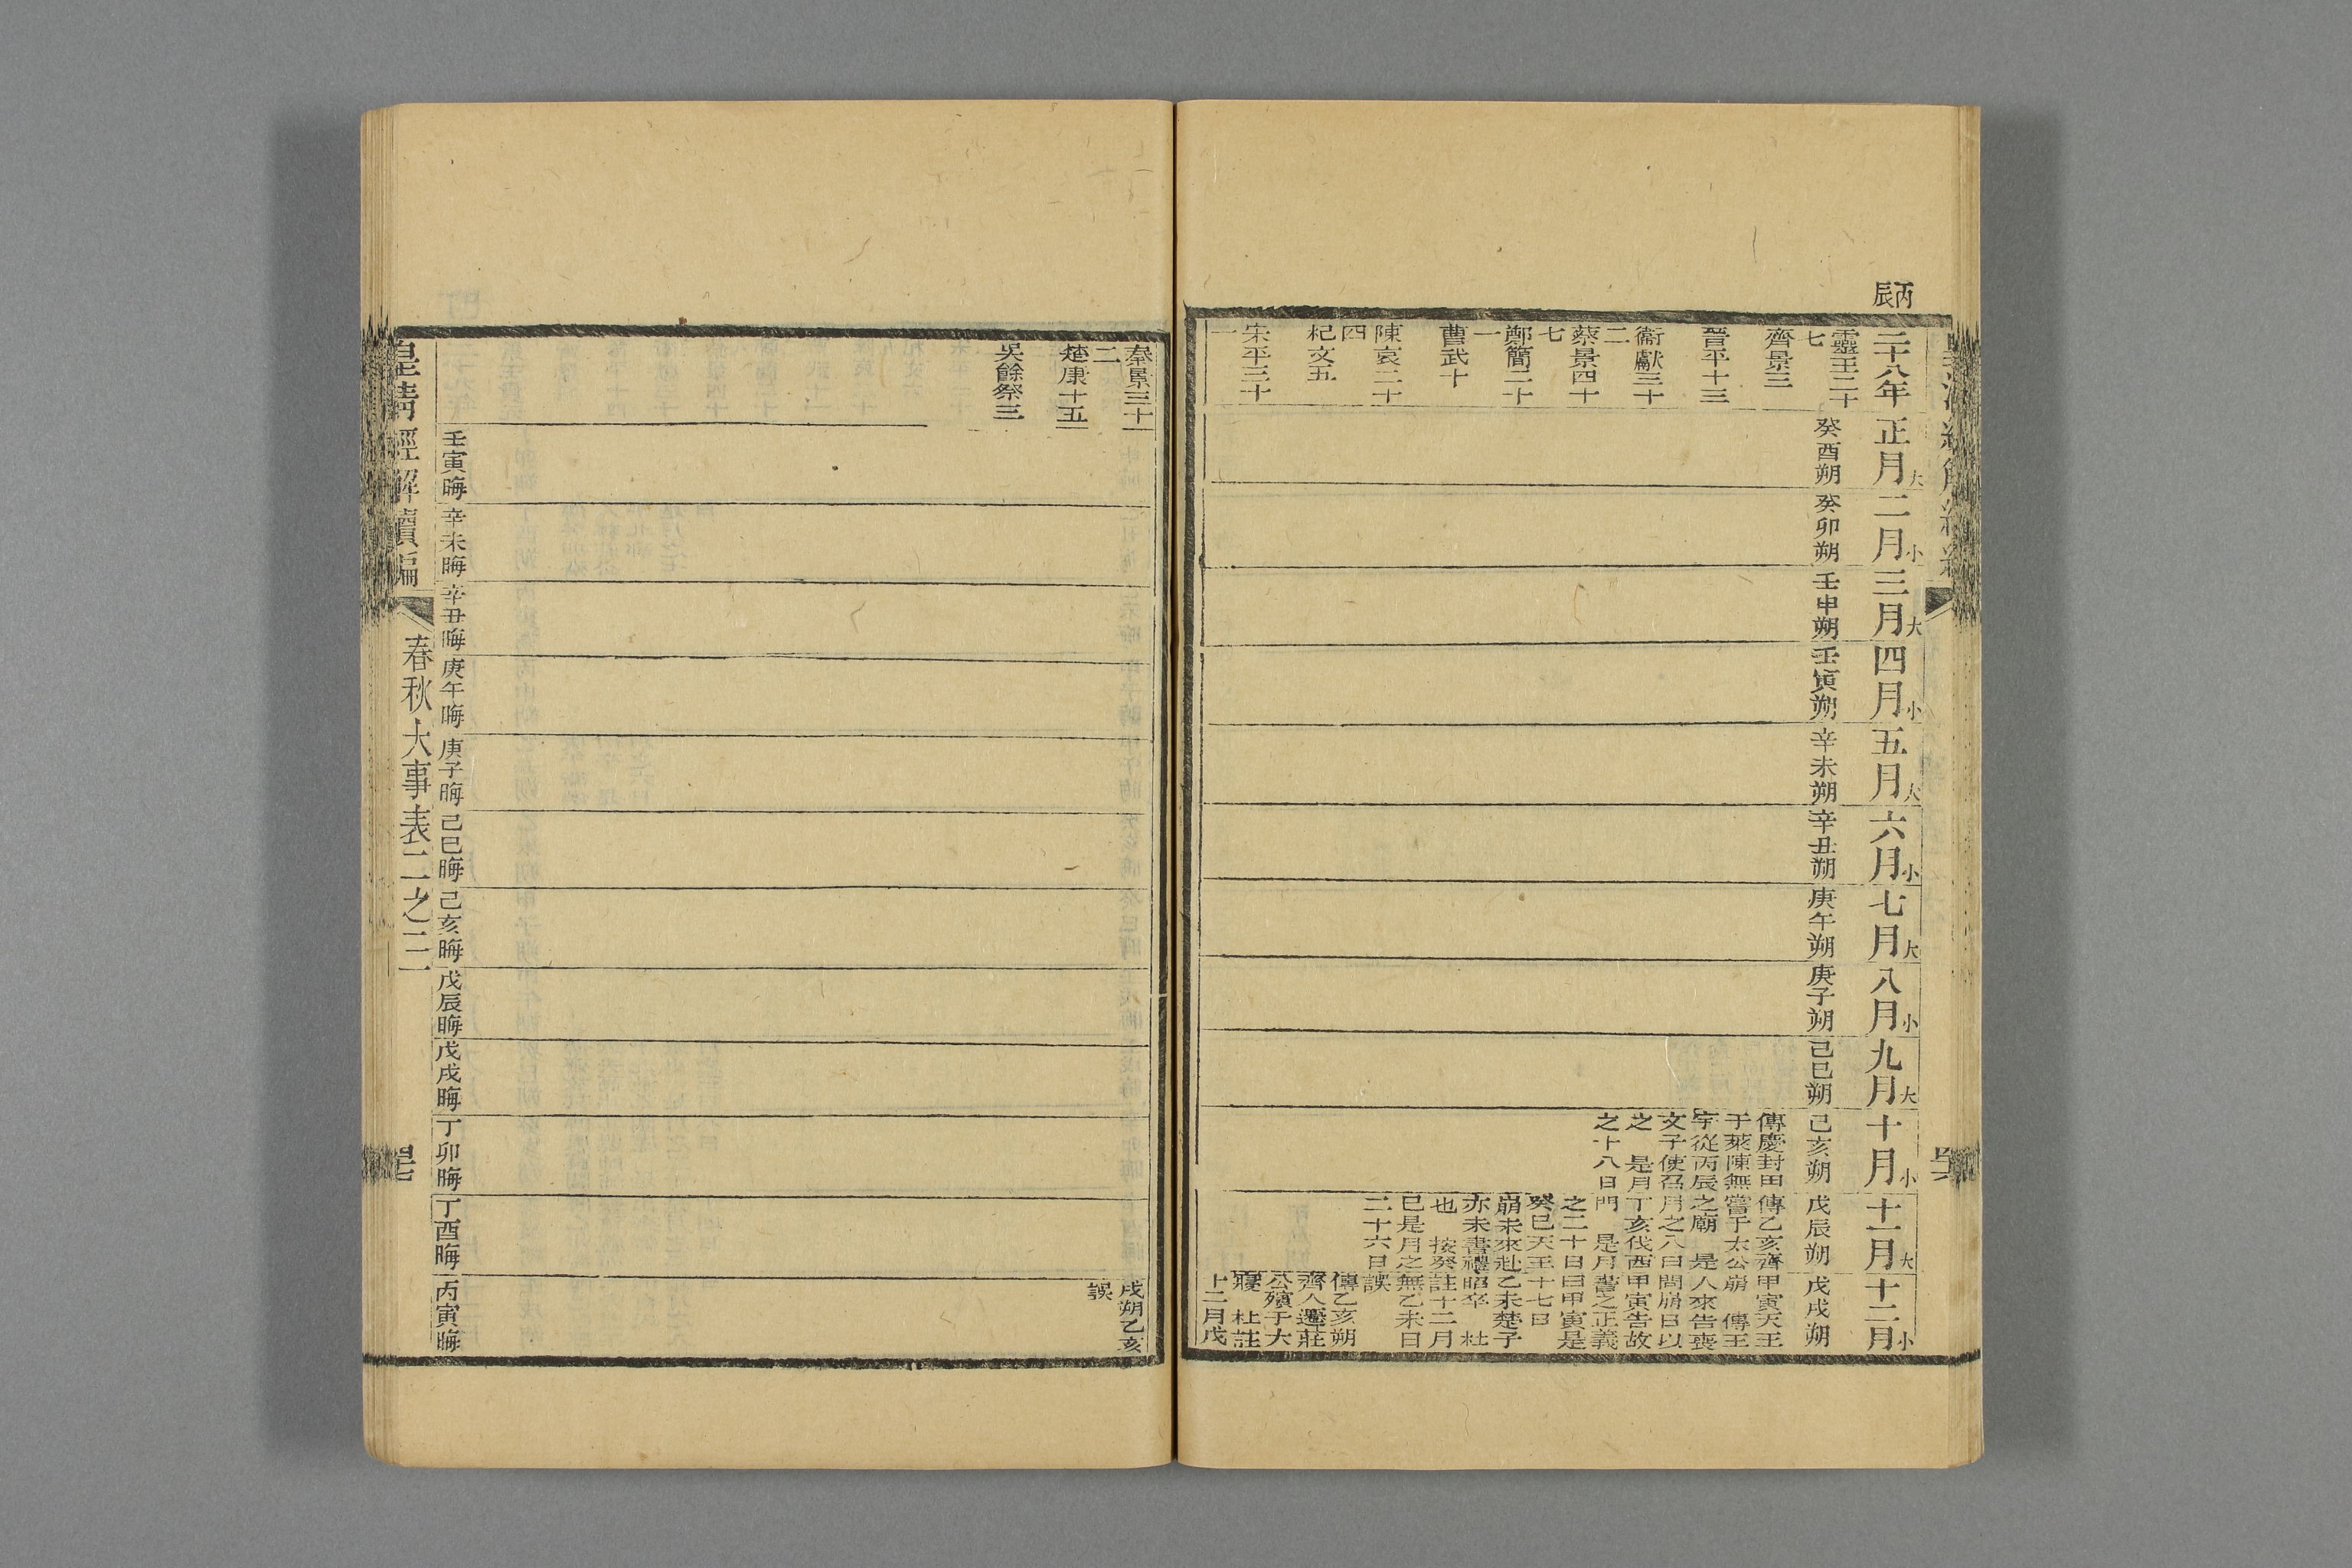 丙辰
二十八年
靈王二十七
齊景三
晉平十三
衞獻三十二
蔡景四十七
鄭簡二十一
曹武十
陳哀二十四
杞文五
宋平三十一
正月大
癸酉朔
二月小
癸卯朔
三月大
壬申朔
四月小
壬寅朔
五月大
辛未朔
六月小
辛丑朔
七月大
庚午朔
八月小
庚子朔
九月大
己巳朔
十月小
己亥朔
傳慶封田
于萊陳無
宇從丙辰
文子使召
之 是月
之十八日
十一月大
戊辰朔
傳乙亥齊
嘗于太公
之廟 是
月之八日
丁亥伐西
門 是月
之二十日
癸巳天王
崩未來赴
亦未書禮
也 按癸
巳是月之
二十六日
十二月小
戊戌朔
甲寅天王
崩 傳王
人來告喪
問崩日以
甲寅告故
書之正義
曰甲寅是
十七日
乙未楚子
昭卒 杜
註十二月
無乙未日
誤
傳乙亥朔
齊人遷莊
公殯于大
寢 杜註
十二月戊
秦景三十二
楚康十五
吳餘祭三
戌朔乙亥
誤
壬寅晦
辛未晦
辛丑晦
庚午晦
庚子晦
己巳晦
己亥晦
戊辰晦
戊戌晦
丁卯晦
丁酉晦
丙寅晦
皇清經解續編
春秋大事表二之三